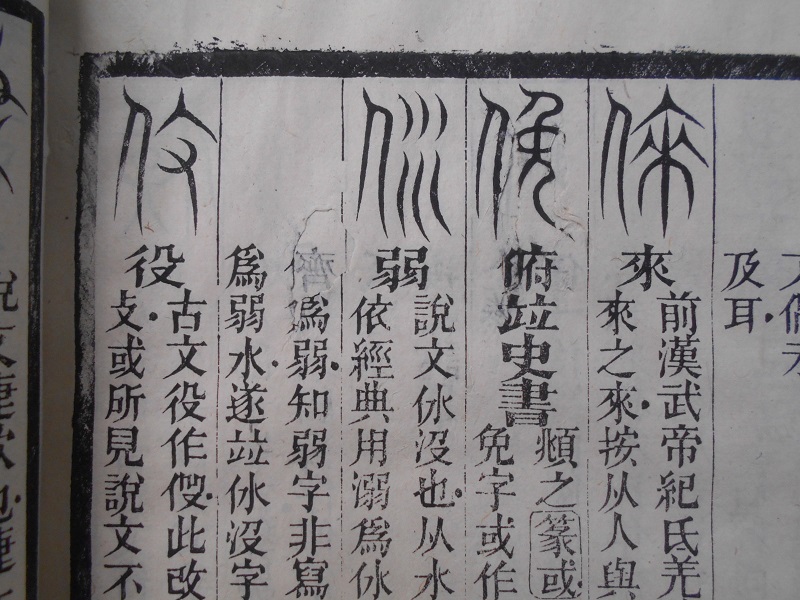 及耳
來
前漢武帝紀氐羌
來之來按从人與
俯竝史書
頫之篆或
免字或作
弱
說文㲻没也从水
依經典用溺爲㲻
爲弱知弱字非寫
爲弱水遂竝㲻没字
役
古文役作伇此改
攴或所見說文不
說文